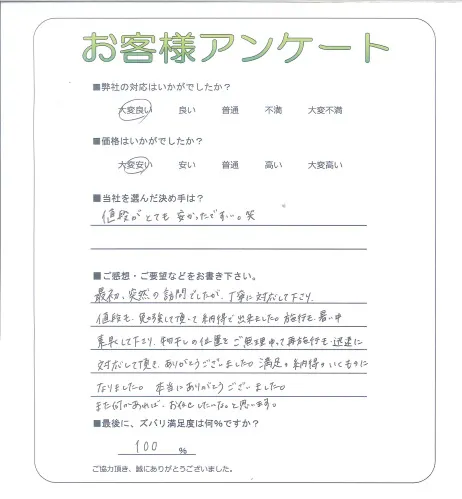 お客様アンケート
■弊社の対応はいかがでしたか？
大変良い 良い 普通 不満 大変不満
■価格はいかがでしたか？
大変安い 安い 普通 高い 大変高い
■当社を選んだ決め手は？
値段がとても安かったですぃ。笑
■ご感想・ご要望などをお書き下さい。
最初、突然の訪問でしたが、丁寧に対応して下さり、
値段も、頂いて納得出来ました。施行も、暑い中
素早くして下さり、物干しの位置をご無理申って再施行も迅速に
対応して頂き、ありがとうございました。満足。納得。いくものに
なりました。本当にありがとうございました。
また何かあれば、お任せしたいな。と思います。
■最後に、ズバリ満足度は何％ですか？
100 %
ご協力頂き、誠にありがとうございました。